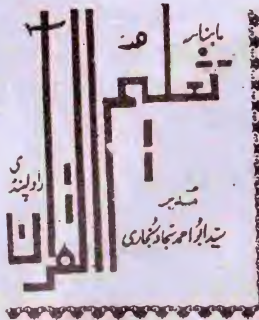 ماہنامہ
تعلیم القرآن
راولپنڈی
مدیر
سید ابو احمد سجاد بخاری